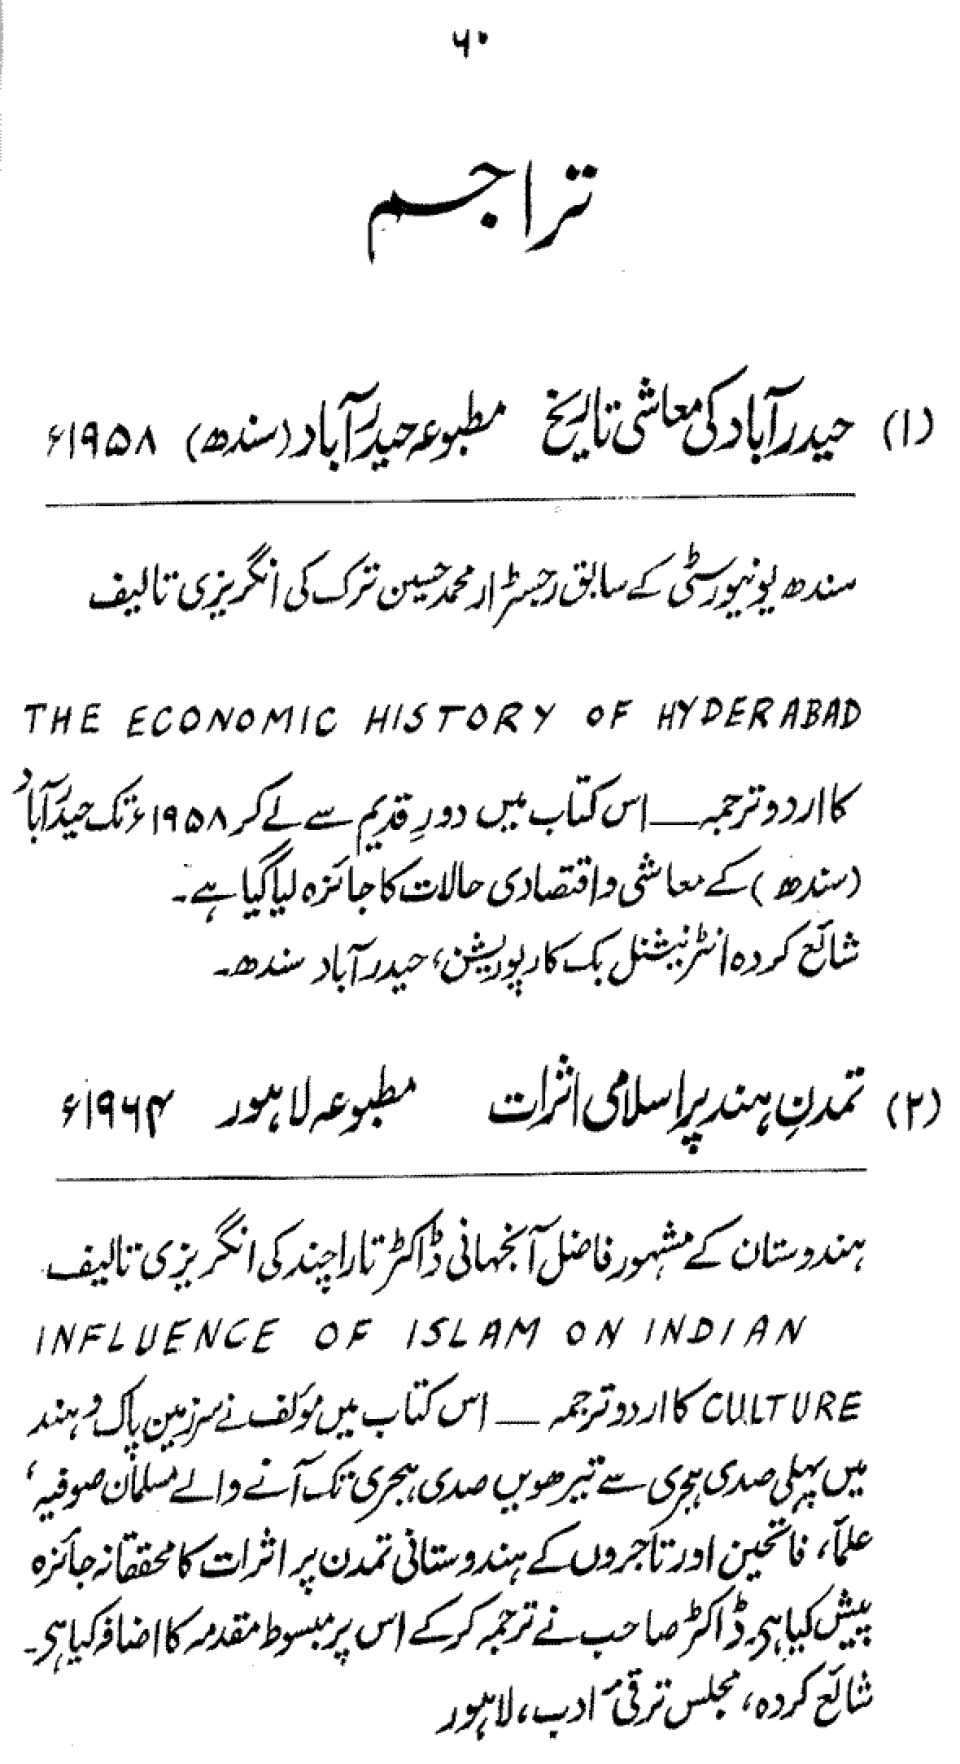 ۶۰
تراجم
(۱) حیدرآباد کی معاشی تاریخ مطبوعہ حیدرآباد (سندھ) ۱۹۵۸ء
سندھ یونیورسٹی کے سابق رجسٹرار محمد حسین ترک کی انگریزی تالیف
THE ECONOMIC HISTORY OF HYDERABAD
کا اردو ترجمہ — اس کتاب میں دورِ قدیم سے لے کر ۱۹۵۸ء تک حیدرآباد
(سندھ) کے معاشی و اقتصادی حالات کا جائزہ لیا گیا ہے۔
شائع کردہ انٹرنیشنل بک کارپوریشن، حیدرآباد سندھ۔
(۲) تمدنِ ہند پر اسلامی اثرات مطبوعہ لاہور ۱۹۶۴ء
ہندوستان کے مشہور فاضل آنجہانی ڈاکٹر تارا چند کی انگریزی تالیف
INFLUENCE OF ISLAM ON INDIAN
CULTURE کا اردو ترجمہ — اس کتاب میں مؤلف نے سرزمین پاک و ہند
میں پہلی صدی ہجری سے تیرھویں صدی ہجری تک آنے والے مسلمان صوفیہ،
علمآء، فاتحین اور تاجروں کے ہندوستانی تمدن پر اثرات کا محققانہ جائزہ
پیش کیا ہے۔ ڈاکٹر صاحب نے ترجمہ کرکے اس پر مبسوط مقدمہ کا اضافہ کیا ہے۔
شائع کردہ، مجلس ترقیٔ ادب، لاہور